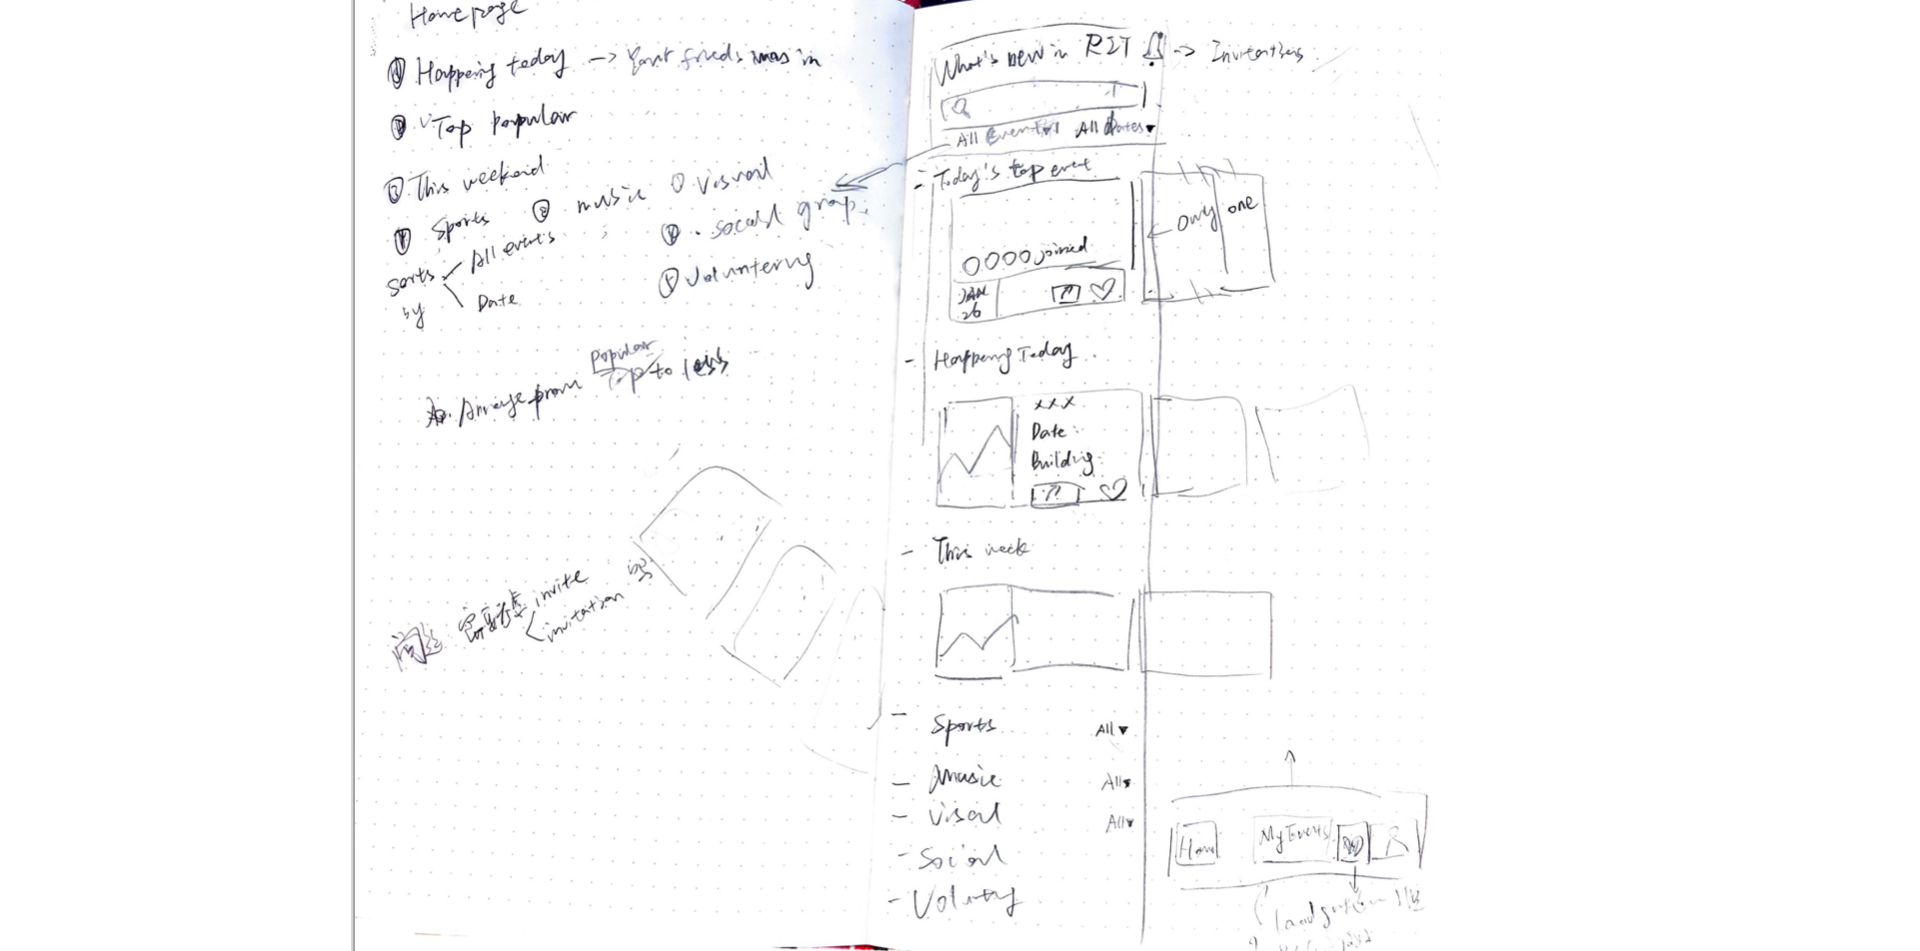 Homepage
① Happening today → Your friends was in
② Top popular
③ This weekend
④ Sports ② music ○ visual
social group.
volunteering
sorts by
All events
Date
Arrange from Top to less
Popular
invite
invitation
What's new in RIT → Invitations
All Events ▾ All Dates ▾
- Today's top event
0000 joined
JAN
26
Only one
- Happening Today
xxx
Date:
Building:
- This week
- Sports All ▾
- Music All ▾
- Visual All ▾
- Social
- Voluntry
Home
My Events